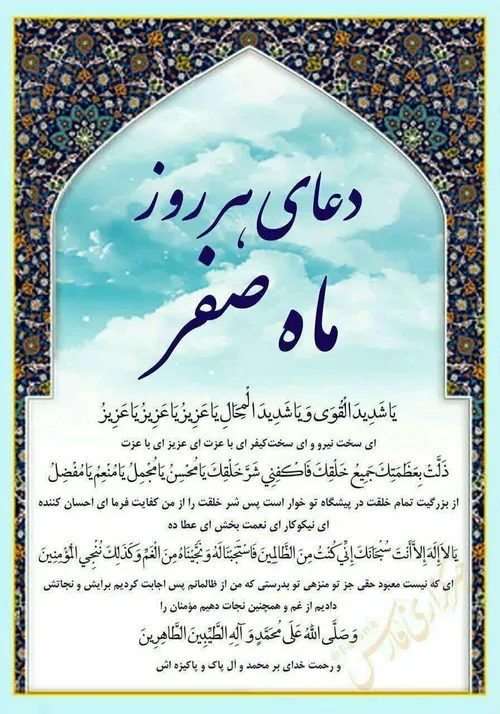 دعای هر روز
ماه صفر
يَا شَدِيدَ الْقُوَى وَ يَا شَدِيدَ الْمِحَالِ يَا عَزِيزُ يَا عَزِيزُ يَا عَزِيزُ
ای سخت نیرو و ای سخت‌کیفر ای با عزت ای عزیز ای با عزت
ذَلَّتْ بِعَظَمَتِكَ جَمِيعُ خَلْقِكَ فَاكْفِنِي شَرَّ خَلْقِكَ يَا مُحْسِنُ يَا مُجْمِلُ يَا مُنْعِمُ يَا مُفْضِلُ
از بزرگیت تمام خلقت در پیشگاه تو خوار است پس شر خلقت را از من کفایت فرما ای احسان کننده
ای نیکوکار ای نعمت بخش ای عطا ده
يَا لاَ إِلَهَ إِلاَّ أَنْتَ سُبْحَانَكَ إِنِّي كُنْتُ مِنَ الظَّالِمِينَ فَاسْتَجَبْنَا لَهُ وَ نَجَّيْنَاهُ مِنَ الْغَمِّ وَ كَذَلِكَ نُنْجِي الْمُؤْمِنِينَ
ای که نیست معبود حقی جز تو منزهی تو بدرستی که من از ظالمانم پس اجابت کردیم برایش و نجاتش
دادیم از غم و همچنین نجات دهیم مؤمنان را
وَ صَلَّى اللهُ عَلَى مُحَمَّدٍ وَ آلِهِ الطَّيِّبِينَ الطَّاهِرِينَ
و رحمت خدای بر محمد و آل پاک و پاکیزه اش
خبرگزاری فارس